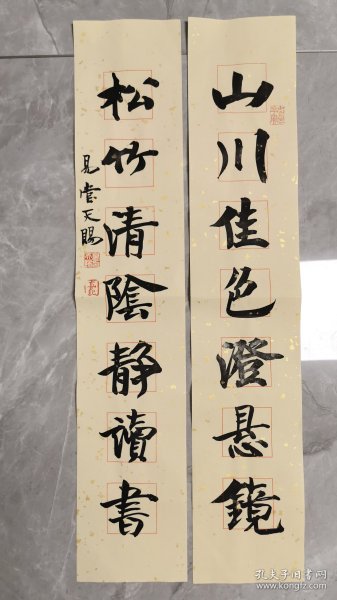 山川佳色澄悬鏡
松竹清陰静讀書
見堂天賜
孔夫子旧书网
www.kongfz.com